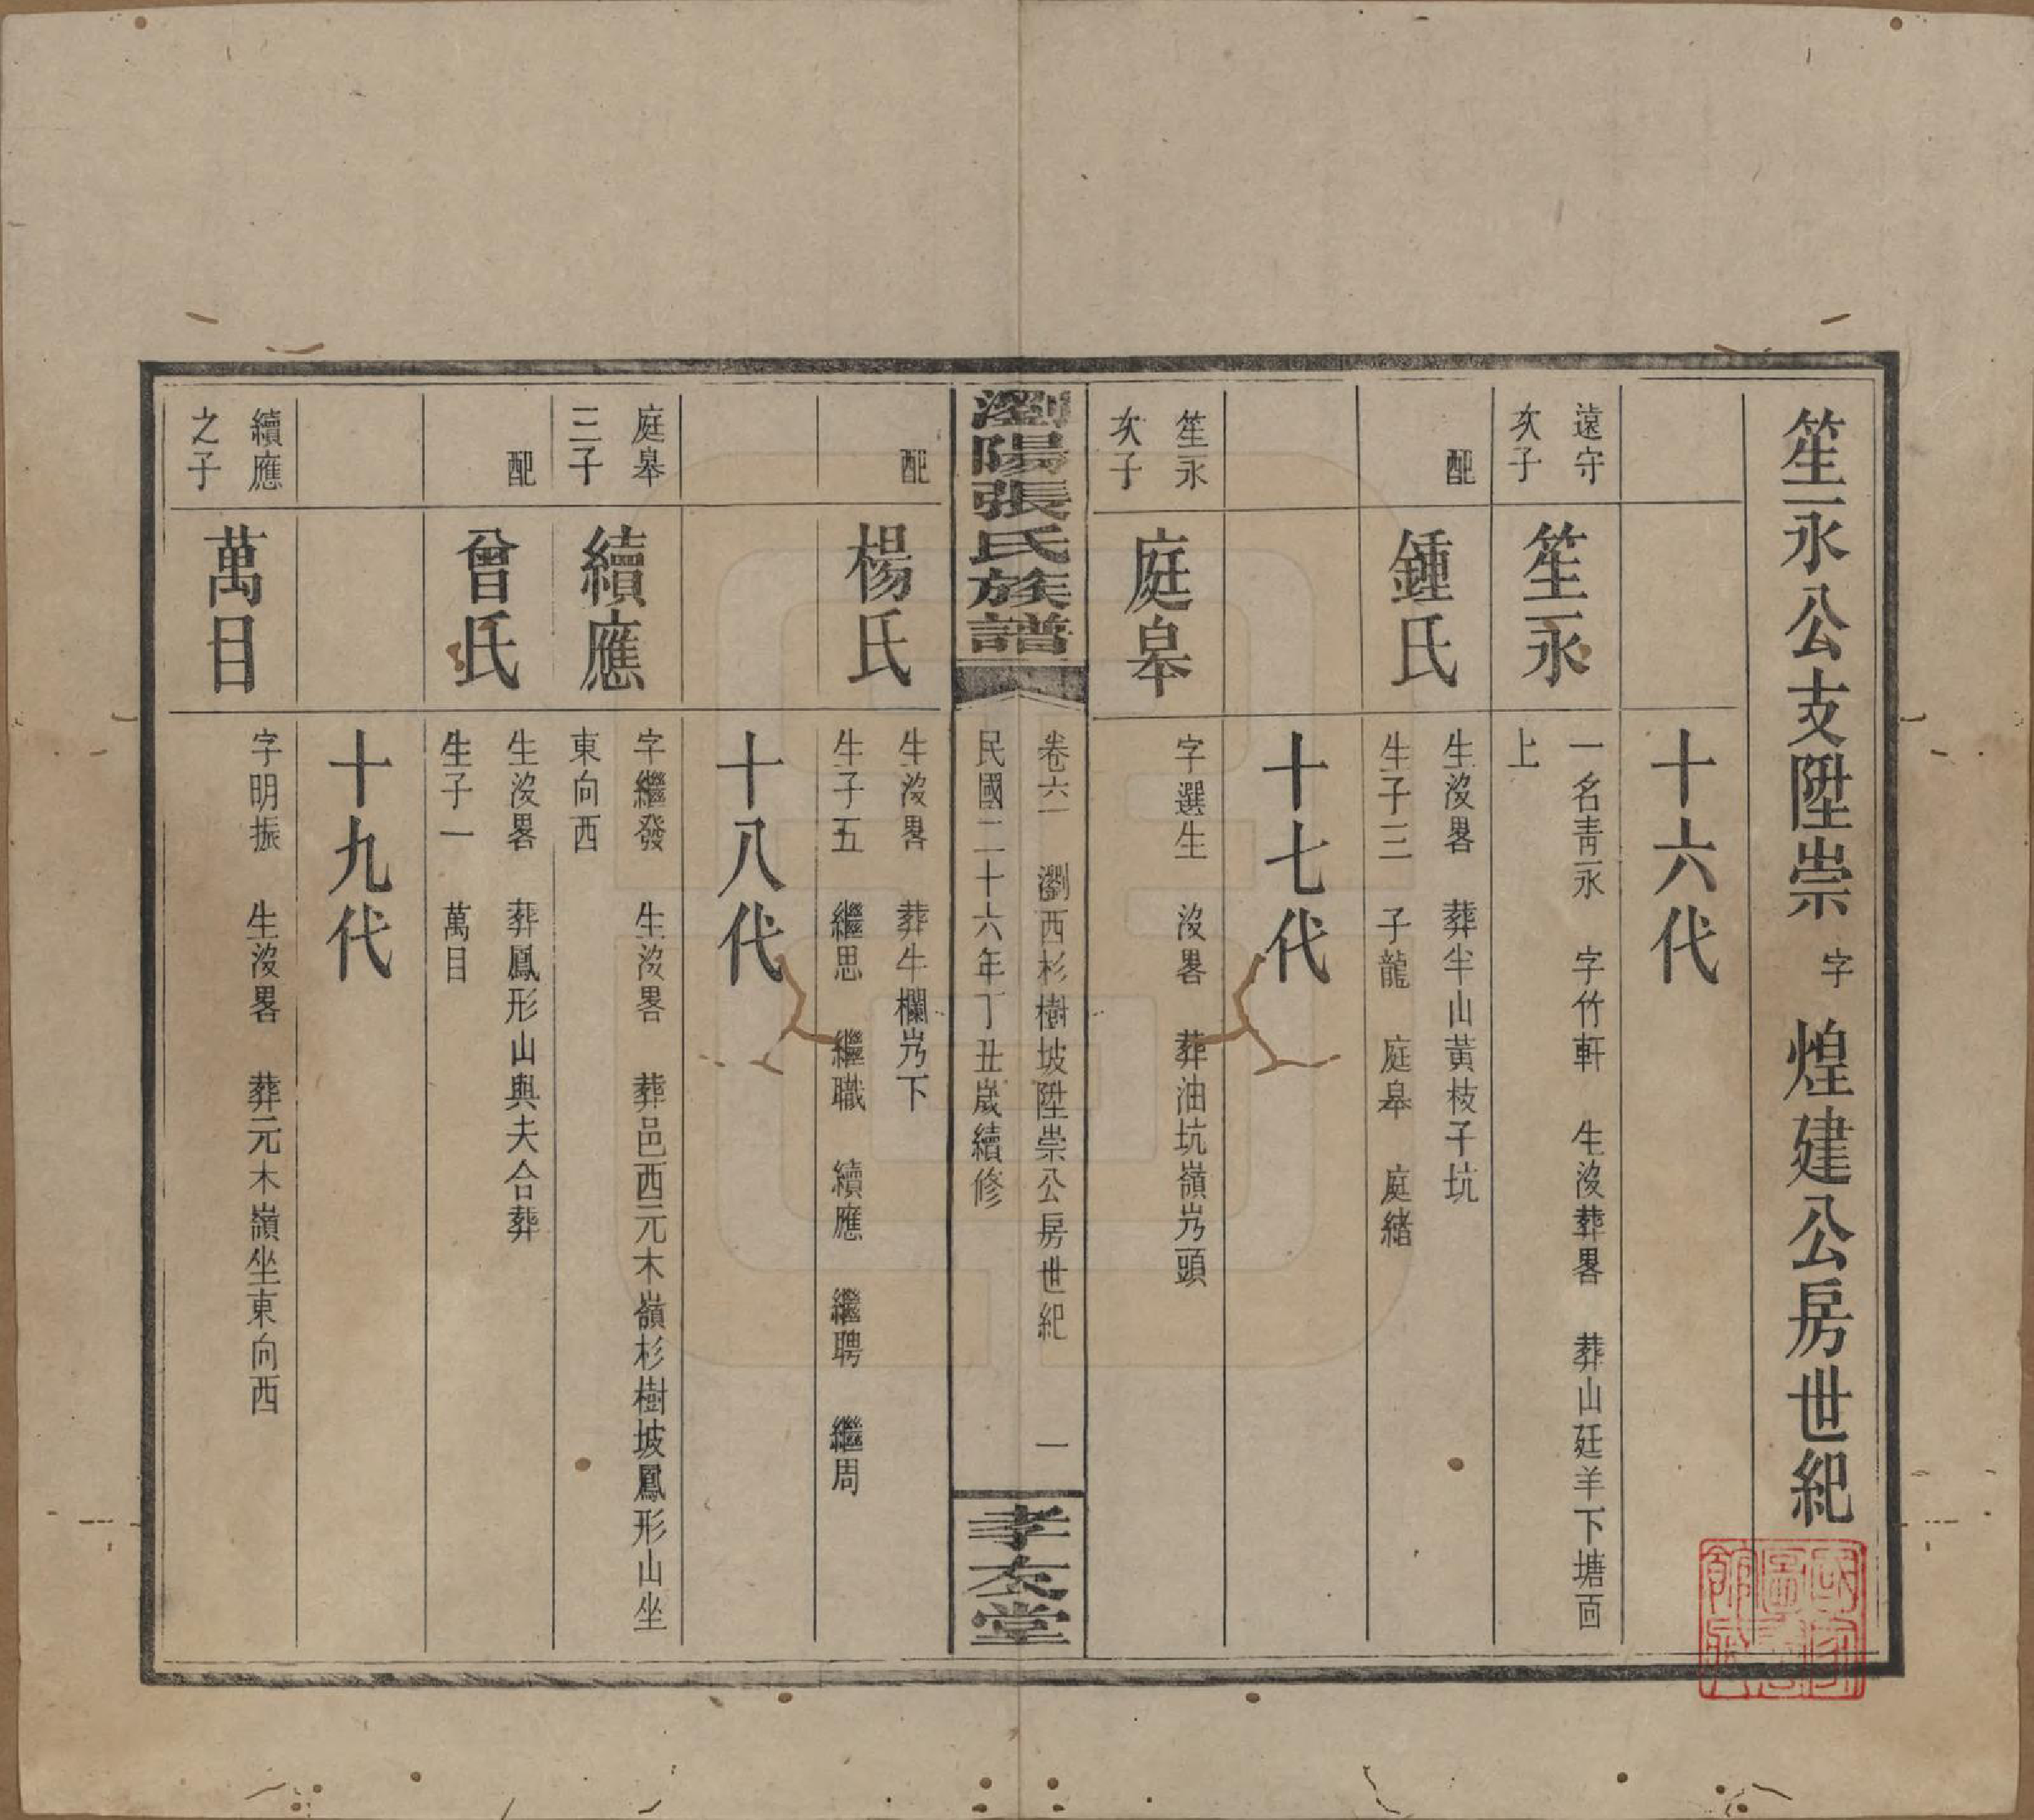 笙永公支陞崇字煌建公房世紀
十六代
遠守
次子
笙永
一名青永 字竹軒 生沒葬畧 葬山廷羊下塘面
上
配
鍾氏
生沒畧 葬半山黃枝子坑
生子三 子龍 庭皋 庭緒
十七代
笙永
次子
庭皋
字選生 沒畧 葬油坑嶺屶頭
瀏陽張氏族譜
卷六一 瀏西杉樹坡陞崇公房世紀 一
民國二十六年丁丑歲續修
孝友堂
配
楊氏
生沒畧 葬牛欄屶下
生子五 繼思 繼職 續應 繼聘 繼周
十八代
庭皋
三子
續應
字繼發 生沒畧 葬邑西元木嶺杉樹坡鳳形山坐
東向西
配
曾氏
生沒畧 葬鳳形山與夫合葬
生子一 萬目
十九代
續應
之子
萬目
字明振 生沒畧 葬元木嶺坐東向西